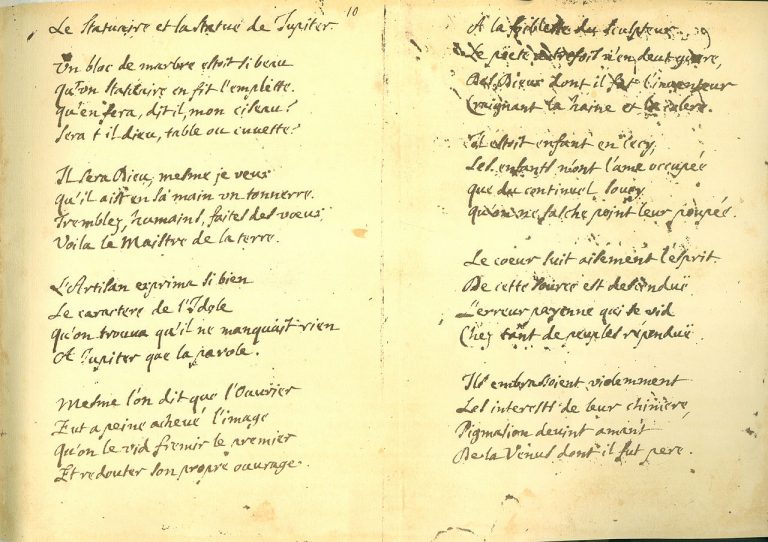 10
Le Statuaire et la statue de Jupiter.
Un bloc de marbre estoit si beau
Qu'un statuaire en fit l'emplette.
Qu'en fera, dit il, mon ciseau?
Sera t il dieu, table ou cuvette?
Il sera Dieu, mesme je veus
Qu'il ait en sa main un tonnerre.
Tremblez, humains, faites des vœus
Voila le Maistre de la terre.
L'Artisan exprima si bien
Le caractere de l'Idole
Qu'on trouva qu'il ne manquoit rien
A Jupiter que la parole.
Mesme l'on dit que l'Ouvrier
Eut a peine achevé l'image
Qu'on le vid fremir le premier
Et redouter son propre ouvrage.
A la foiblesse du sculpteur
Le poete autrefois n'en deut guere,
Des Dieux dont il fut l'inventeur
Craignant la haine et la colere.
Il estoit enfant en cecy,
Les enfants n'ont l'ame occupée
que du continuel soucy
qu'on ne fasche point leur poupée.
Le coeur suit aisement l'esprit.
De cette source est descenduë
L'erreur payenne qui se vid
Chez tant de peuples répenduë
Ils embrassoient violemment
Les interests de leur chimere,
Pigmalion devint amant
De la Venus dont il fut pere.